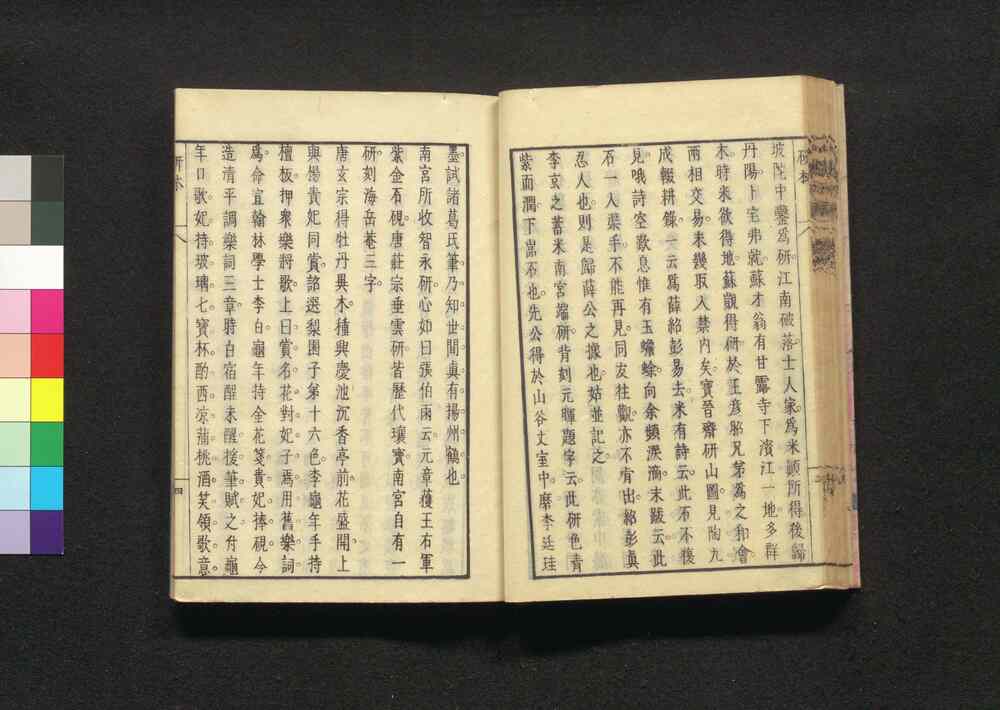 坡陀中鑿爲研江南破落士人家爲米顚所得後歸
丹陽卜宅弗就蘇才翁有甘露寺下濱江一地多群
木時米欲得地蘇覬得研於王彦昭兄弟爲之和會
兩相交易未幾取入禁内矣寳晉齋研山圖見陶九
成輟耕錄一云爲薛紹彭易去米有詩云此石不復
見哦詩空歎息惟有玉蟾蜍向余頻淚滴末跋云此
石一入渠手不能再見同友往觀亦不肯出紹彭眞
忍人也則是歸薛公之據也姑並記之
李京之蓄米南宮端研背刻元暉題字云此研色青
紫而潤下嵓石也先公得於山谷丈室中麽李廷珪
墨試諸葛氏筆乃知世間眞有揚州鶴也
南宮所收智永研心如臼張伯雨云元章獲王右軍
紫金石硯唐莊宗垂雲研皆歷代瓌寳南宮自有一
研刻海岳菴三字
唐玄宗得牡丹異木種興慶池沉香亭前花盛開上
與楊貴妃同賞詔選梨園子弟十六色李龜年手持
檀板押衆樂將歌上曰賞名花對妃子焉用舊樂詞
爲命宣翰林學士李白龜年持金花箋貴妃捧硯今
造清平調樂詞三章時白宿酲未醒援筆賦之命龜
年口歌妃持玻璃七寳杯酌西涼葡桃酒笑領歌意
四